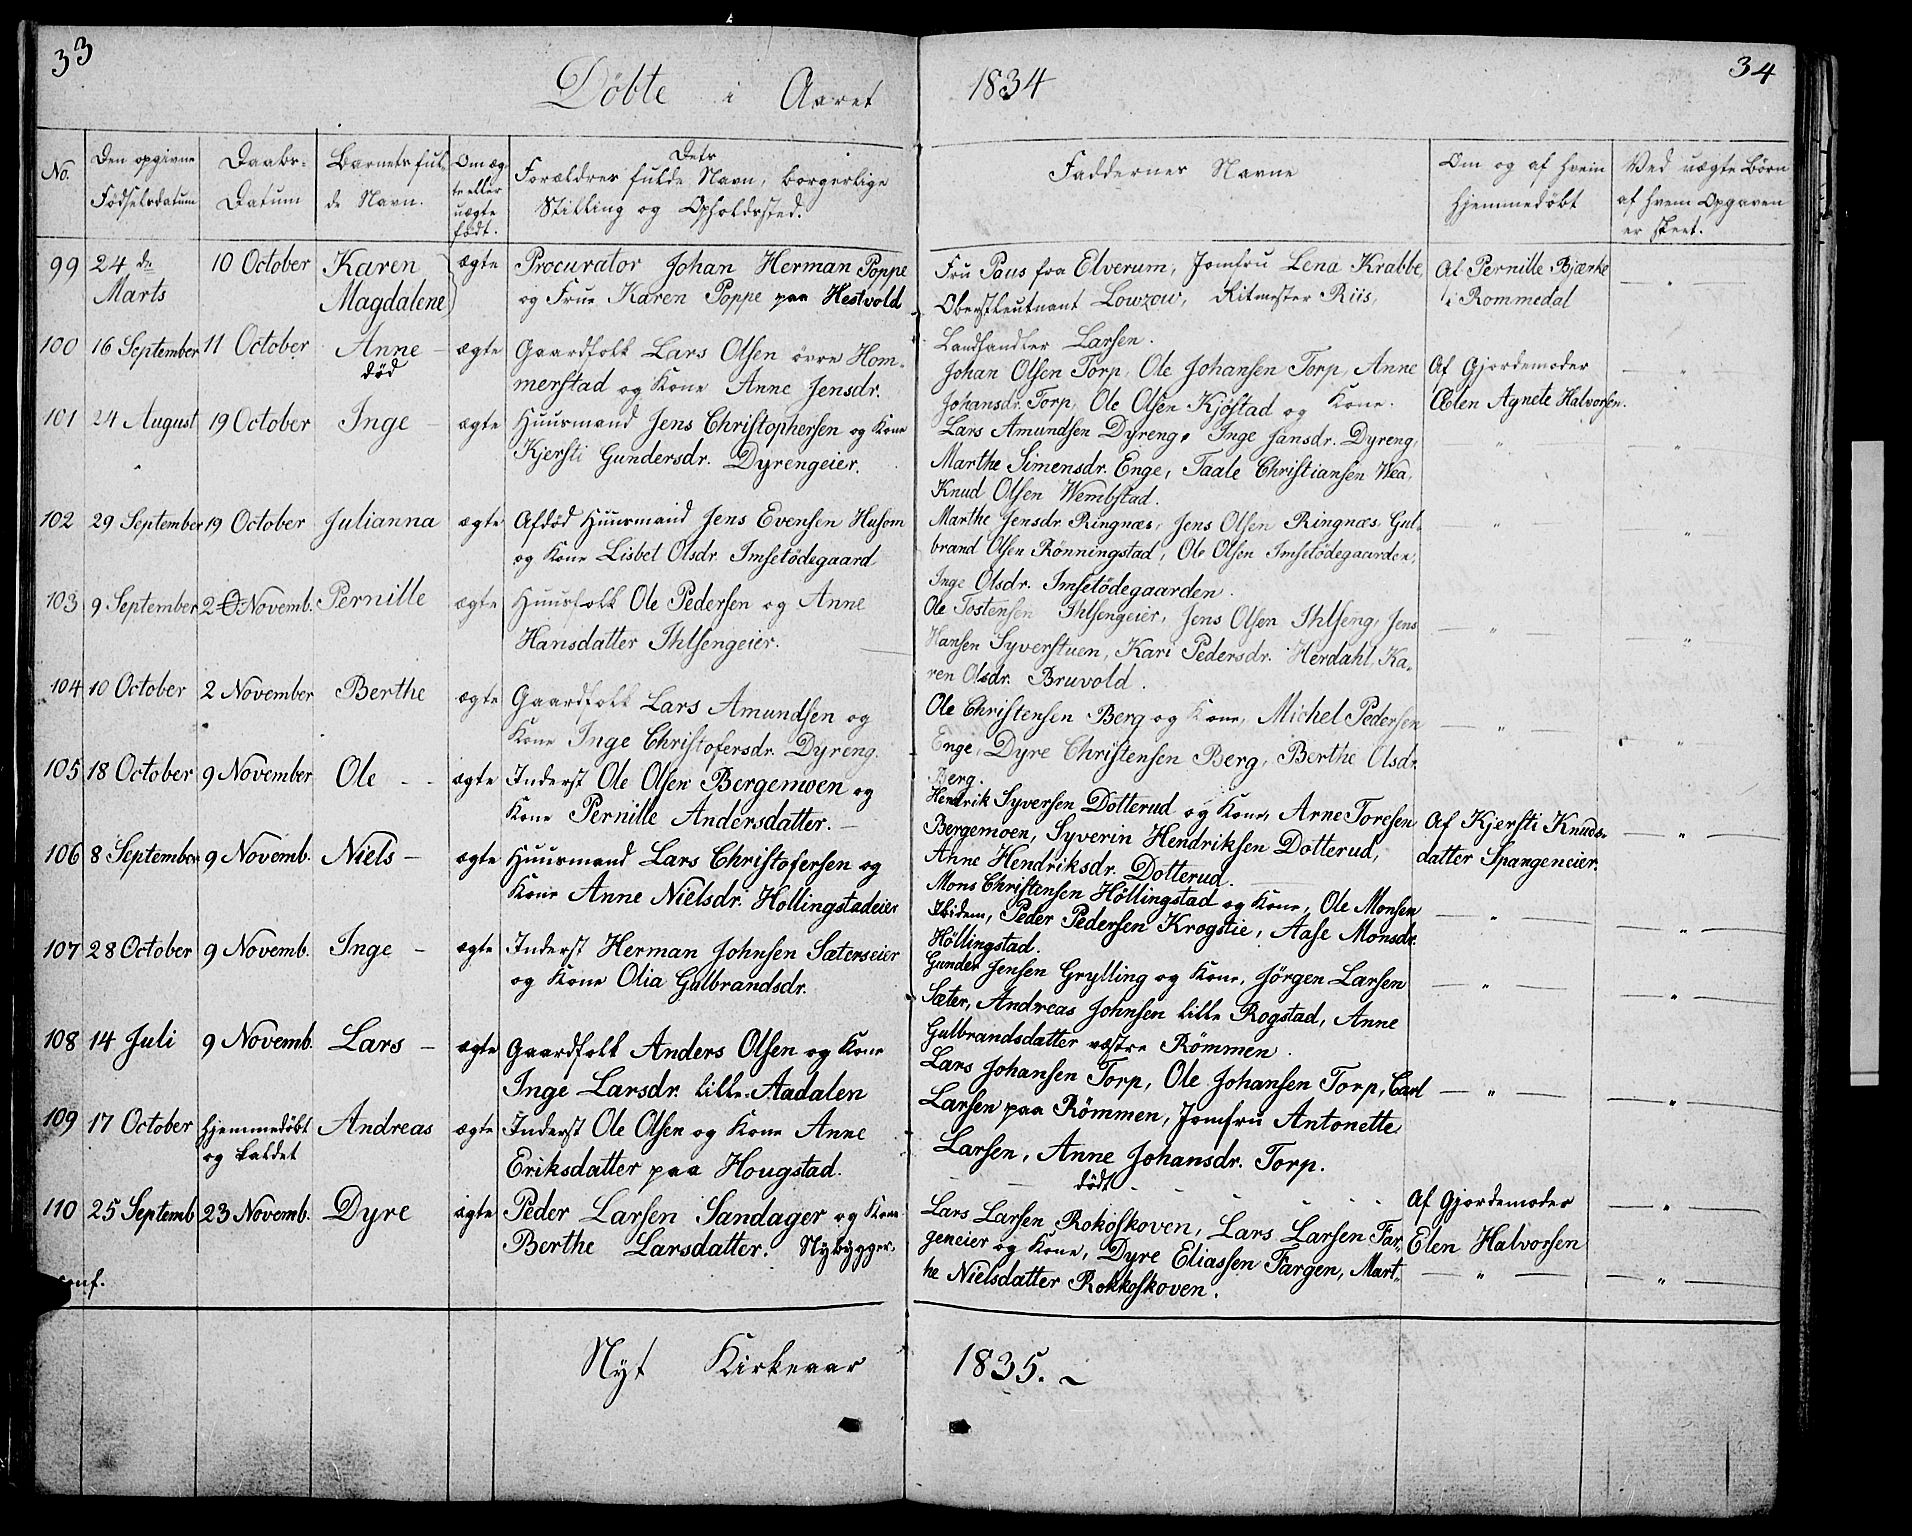 33
Döbte i Aaret
No.
Den opgivne
Födselsdatum
Daabs-
Datum
Barnets ful-
de Navn.
Om æg-
te eller
uægte
födt.
Dets
Forældres fulde Navn, borgerlige
Stilling og Opholdssted.
99 24de 10 October Karen ægte Procurator Johan Herman Poppe
Marts Magdalene og Frue Karen Poppe paa Hestvold
100 16 September 11 October Anne - ægte Gaardfolk Lars Olsen övre Hom-
död merstad og Kone Anne Jensdr.
101 24 August 19 October Inge - ægte Huusmand Jens Christophersen og Kone
Kjersti Gundersdr. Dyrengeier.
102 29 September 19 October Julianna ægte Afdöd Huusmand Jens Evensen Husom
og Kone Lisbet Olsdr. Imsetödegaard
103 9 September 2 Novemb. Pernille ægte Huusfolk Ole Pedersen og Anne
Hansdatter Ihlsengeier.
104 10 October 2 November Berthe ægte Gaardfolk Lars Amundsen og
Kone Inge Christofersdr. Dyreng.
105 18 October 9 November Ole - ægte Inderst Ole Olsen Bergemoen og
Kone Pernille Andersdatter.
106 8 September 9 Novemb. Niels - ægte Huusmand Lars Christofersen og
Kone Anne Nielsdr. Hollingstadeier
107 28 October 9 Novemb. Inge - ægte Inderst Herman Johnsen Sæterseier
og Kone Olia Gulbrandsdr.
108 14 Juli 9 Novemb. Lars - ægte Gaardfolk Anders Olsen og Kone
Inge Larsdr. lille Aadalen
109 17 October Hjemmedöbt Andreas ægte Inderst Ole Olsen og Kone Anne
og kaldet Eriksdatter paa Hougstad.
110 25 Septemb 23 Novemb. Dyre ægte Peder Larsen Sandager og Kone
Berthe Larsdatter. Nybygger.
conf.
Nyt Kirkeaar
34
1834
Faddernes Navne
Om og af hvem
hjemmedöbt
Ved uægte Börn
af hvem Opgaven
er skeet.
Fru Paus fra Elverum, Jomfru Lena Krabbe, Af Pernille Bjærke
Oberstleutnant Lowzow, Ritmester Riis, i Rommedal
Landhandler Larsen.
Johan Olsen Torp, Ole Johansen Torp, Anne Af Gjordemoder
Johansdr. Torp, Ole Olsen Kjöstad og Kone. Œlen Agnete Halvorsen.
Lars Amundsen Dyreng, Inge Hansdr. Dyreng,
Marthe Simensdr. Enge, Taale Christiansen Wea,
Knud Olsen Wembstad.
Marthe Jensdr. Ringnæs, Jens Olsen Ringnæs, Gul-
brand Olsen Rönningstad, Ole Olsen Imsetödegaarden,
Inge Olsdr. Imsetödegaarden.
Ole Tostensen Ihlsengeier, Jens Olsen Ihlseng, Jens
Hansen Syverstuen, Kari Pedersdr. Herdahl, Ka-
ren Olsdr. Bruvold.
Ole Christensen Berg og Kone, Michel Pedersen
Enge, Dyre Christensen Berg, Berthe Olsdr.
Berg.
Hendrik Syversen Dotterud og Kone, Arne Toresen Af Kjersti Knuds-
Bergemoen, Syverin Hendriksen Dotterud, datter Spangeneier.
Anne Hendriksdr. Dotterud.
Mons Christensen Höllingstad og Kone, Ole Monsen
Ibidem, Peder Pedersen Krogstie, Aase Monsdr.
Höllingstad.
Gunder Jensen Grylling og Kone, Jörgen Larsen
Sæter, Andreas Johnsen lille Rogstad, Anne
Gulbrandsdatter vestre Römmen.
Lars Johansen Torp, Ole Johansen Torp, Carl
Larsen paa Römmen, Jomfru Antonette
Larsen, Anne Johansdr. Torp.
Af Gjordemoder
dödt
Elen Halvorsen
Lars Larsen Rokoskoven, Lars Larsen Far-
geneier og Kone, Dyre Eliassen Fargen, Mart-
he Nielsdatter Rokkoskoven.
1835.